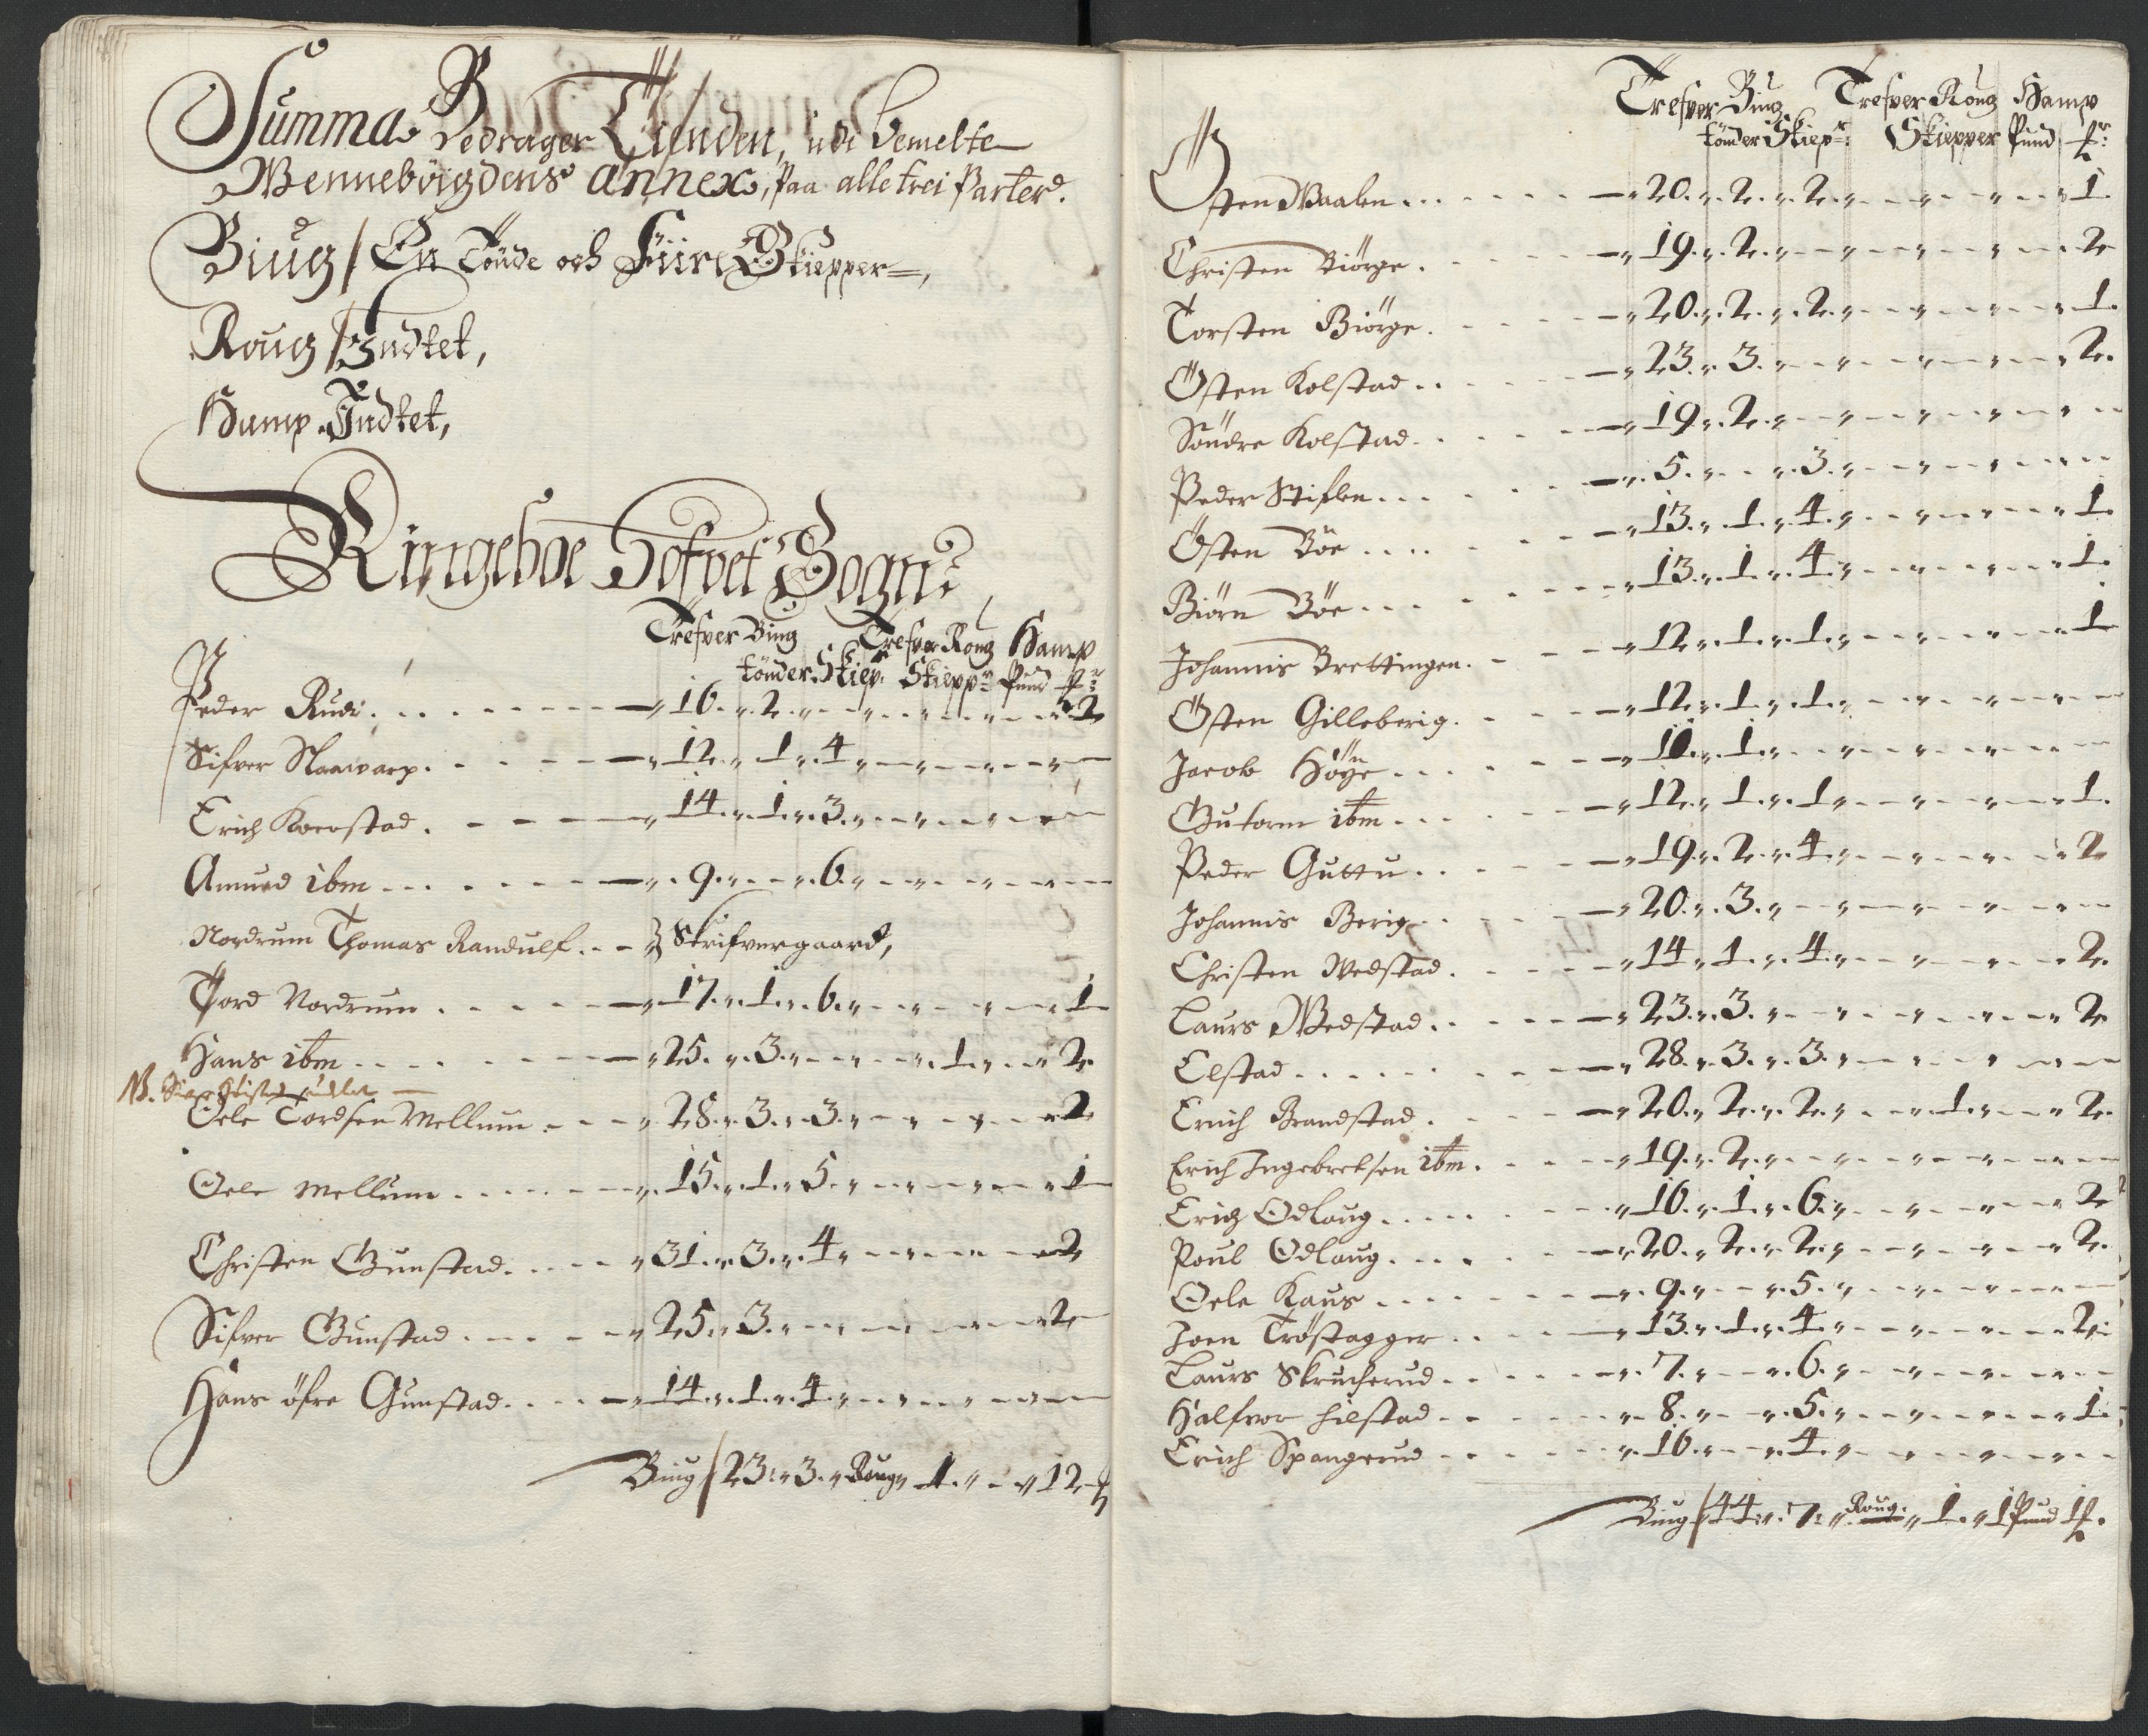 Summa Bedrager Tienden, udi bemelte
Wennebögdens annex, paa alle trei Parter.
Biug / En Tönde och Fiire Skiepper,
Roug / Indtet,
Hamp Indtet,
Ringeboe Hofvet Sogn
Trefver Biug Trefver Roug Hamp
tönder. Skiep. Skiepp: Pund
Peder Rudi . . . 16 . 2 . . . 2
Sifver . . . 12 . 1 . 4
Erich . . . 14 . 1 . 3
Amund ibm . . . 9 . . 6
Nordrum Thomas Randulf . . Skrifvergaard,
Tord Nordrum . . . 17 . 1 . 6 . . . 1
Hans ibm . . . 25 . 3 . . . 1 . . 2
NB.
Oele Tordsen Mellum . . . 28 . 3 . 3 . . . 2
Oele Mellum . . . 15 . 1 . 5 . . . 1
Christen Gunstad . . . 31 . 3 . 4 . . . 2
Sifver Gunstad . . . 25 . 3 . . . 2
Hans öfre Gunstad . . . 14 . 1 . 4
Biug / 23 : 3 . Roug 1 . . 12
Trefver Biug Trefver Roug Hamp
tönder Skiep: Skiepper Pund
Östen Waalen . . . 20 . 2 . 2 . . . 1
Christen Biörge . . . 19 . 2 . . . 2
Torsten Biörge . . . 20 . 2 . 2 . . . 1
Östen Kolstad . . . 23 . 3 . . . 2
Söndre Kolstad . . . 19 . 2
Peder Stiflen . . . 5 . . 3
Östen Böe . . . 13 . 1 . 4 . . . 1
Biörn Böe . . . 13 . 1 . 4 . . . 1
Johannis Brettingen . . . 12 . 1 . 1 . . . 1
Östen Gilleberig . . . 12 . 1 . 1
Jacob . . . 1
Gutorm ibm . . . 12 . 1 . 1 . . . 1
Peder Guttu . . . 19 . 2 . 4 . . . 2
Johannis Berig . . . 20 . 3
Christen Wedstad . . . 14 . 1 . 4 . . . 2
Laurs Wedstad . . . 23 . 3 . . . 2
Elstad . . . 28 . 3 . 3
Erich Brandstad . . . 20 . 2 . 2 . . 1 . . 2
Erich Ingebretsen ibm . . . 19 . 2
Erich Odlaug . . . 16 . 1 . 6 . . . 2
Poul Odlaug . . . 20 . 2 . 2 . . . 2
Oele Kaus . . . 9 . . 5
Joen Tröstagger . . . 13 . 1 . 4 . . . 2
Laurs Skrucherud . . . 7 . . 6
Halfvor . . . 8 . . 5 . . . 1
Erich Spangerud . . . 16 . . 4
Biug / 44 : 7 : Roug . 1 . 1 Pund